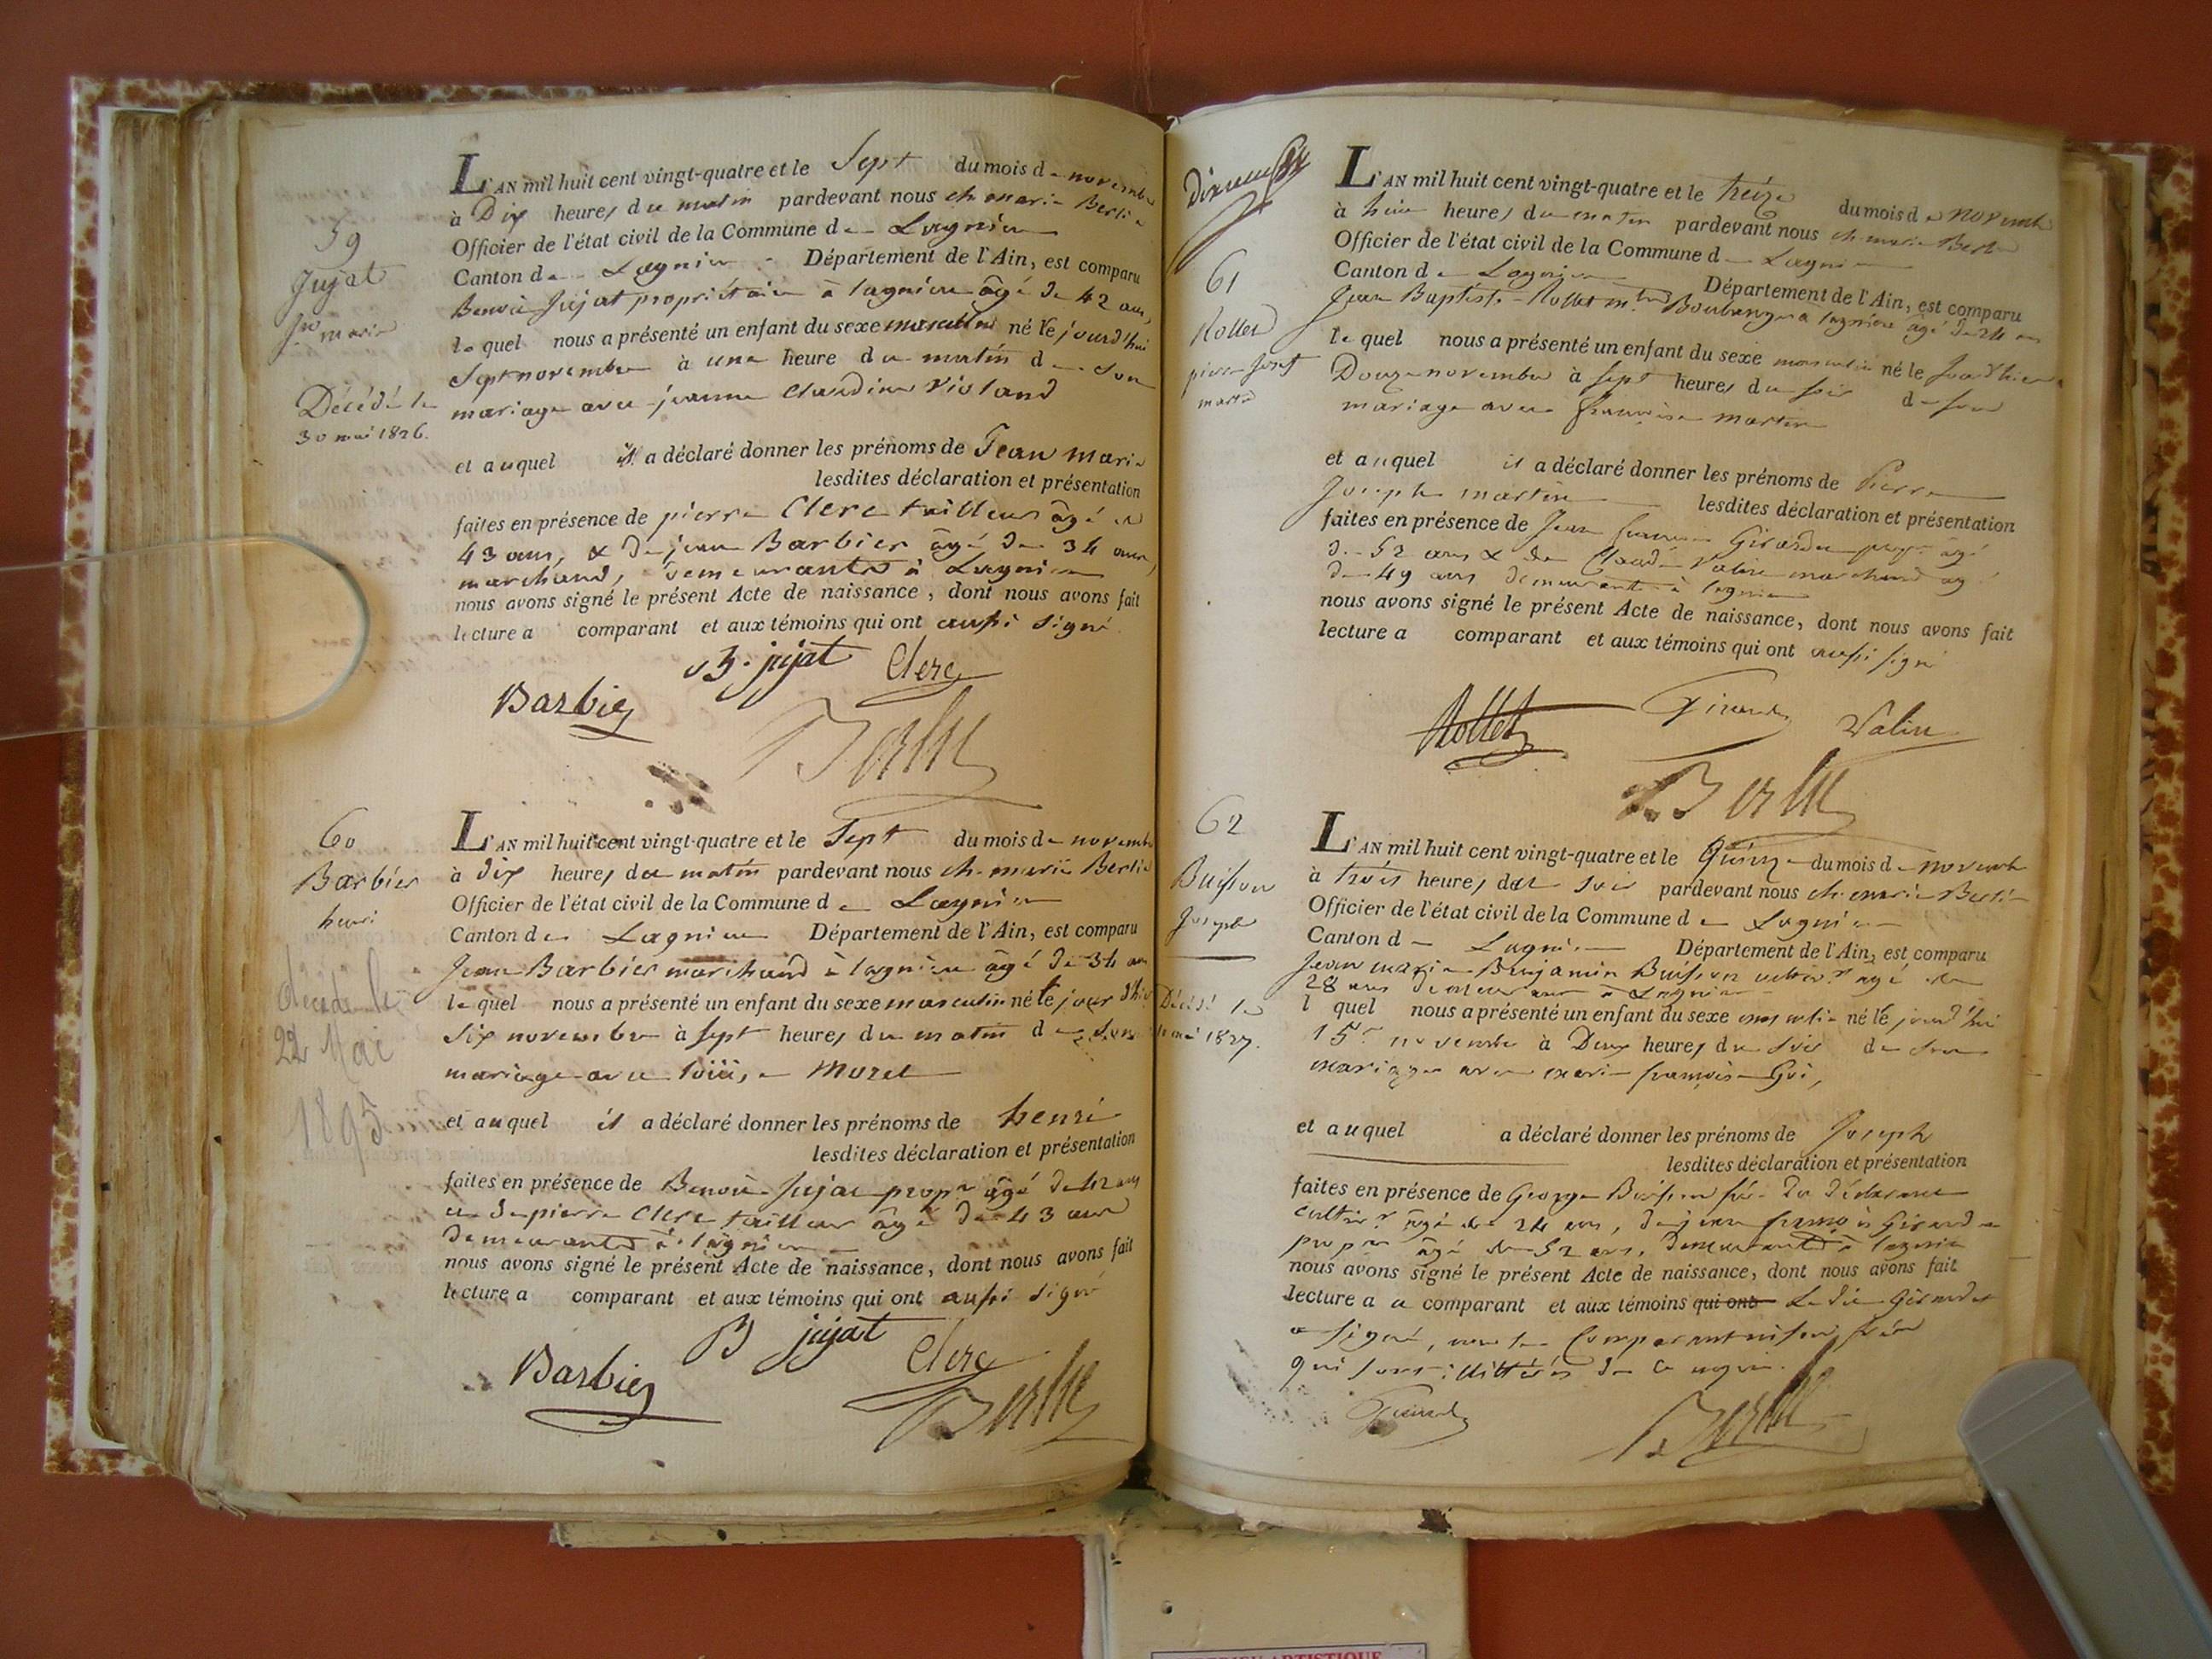 59
Jujat
Jn marie
Décédé le
30 mai 1826.
L'AN mil huit cent vingt-quatre et le Sept du mois de novembre
à Dix heures du matin pardevant nous ch marie Berlie
Officier de l'état civil de la Commune de Lagnieu
Canton de Lagnieu Département de l'Ain, est comparu
Benoit Jujat propriétaire à lagnieu âgé de 42 ans,
le quel nous a présenté un enfant du sexe masculin né le jourd'hui
Sept novembre à une heure du matin de son
mariage avec jeanne Claudine Violand
et auquel il a déclaré donner les prénoms de Jean marie
lesdites déclaration et présentation
faites en présence de pierre Clerc tailleur âgé de
43 ans, & de jean Barbier âgé de 34 ans,
marchand, demeurants à Lagnieu
nous avons signé le présent Acte de naissance, dont nous avons fait
lecture a comparant et aux témoins qui ont aussi signé
B. jujat Clerc
Barbier
Berlie
60
Barbier
henri
décédé le
22 Mai
1895
L'AN mil huit cent vingt-quatre et le Sept du mois de novembre
à dix heures du matin pardevant nous ch. marie Berlie
Officier de l'état civil de la Commune de Lagnieu
Canton de Lagnieu Département de l'Ain, est comparu
Jean Barbier marchand à lagnieu âgé de 34 ans
le quel nous a présenté un enfant du sexe masculin né le jour d'hier
Six novembre à sept heures du matin de son
mariage avec Morel
et auquel il a déclaré donner les prénoms de henri
lesdites déclaration et présentation
faites en présence de Benoit Jujat propre âgé de 42 ans
et de pierre Clerc tailleur âgé de 43 ans
demeurants à lagnieu
nous avons signé le présent Acte de naissance, dont nous avons fait
lecture a comparant et aux témoins qui ont aussi signé
B jujat Clerc
Barbier Berlie
61
Rollet
pierre joseph
martin
L'AN mil huit cent vingt-quatre et le treize du mois de novembre
à heures du matin pardevant nous ch marie Berlie
Officier de l'état civil de la Commune de Lagnieu
Canton de Lagnieu Département de l'Ain, est comparu
Jean Baptiste Rollet md Boulanger à lagnieu âgé de 24 ans
le quel nous a présenté un enfant du sexe masculin né le jour d'hier
Douze novembre à sept heures du soir de son
mariage avec françoise martin
et auquel il a déclaré donner les prénoms de Pierre
Joseph martin lesdites déclaration et présentation
faites en présence de Jean françois Girardin propre âgé
de 52 ans & de Claude Valin marchand âgé
de 49 ans demeurants à lagnieu
nous avons signé le présent Acte de naissance, dont nous avons fait
lecture a comparant et aux témoins qui ont aussi signé
Rollet Valin
Berlie
62
Buisson
Joseph
Décédé le
mai 1827.
L'AN mil huit cent vingt-quatre et le Quinze du mois de novembre
à trois heures du soir pardevant nous ch. marie Berlie
Officier de l'état civil de la Commune de Lagnieu
Canton de Lagnieu Département de l'Ain, est comparu
Jean marie Benjamin Buisson cultivr âgé de
28 ans demeurant à Lagnieu
l quel nous a présenté un enfant du sexe masculin né le jourd'hui
15 novembre à Deux heures du soir de son
mariage avec marie françoise Gui,
et auquel a déclaré donner les prénoms de Joseph
lesdites déclaration et présentation
faites en présence de George Buisson frère du déclarant
cultivr âgé de 24 ans, de jean françois Girardin
propre âgé de 52 ans, demeurants à lagnieu
nous avons signé le présent Acte de naissance, dont nous avons fait
lecture a u comparant et aux témoins qui ont Ledit Girardin
a signé, non le Comparant ni son frère
qui sont illittérés de ce requis.
Berlie